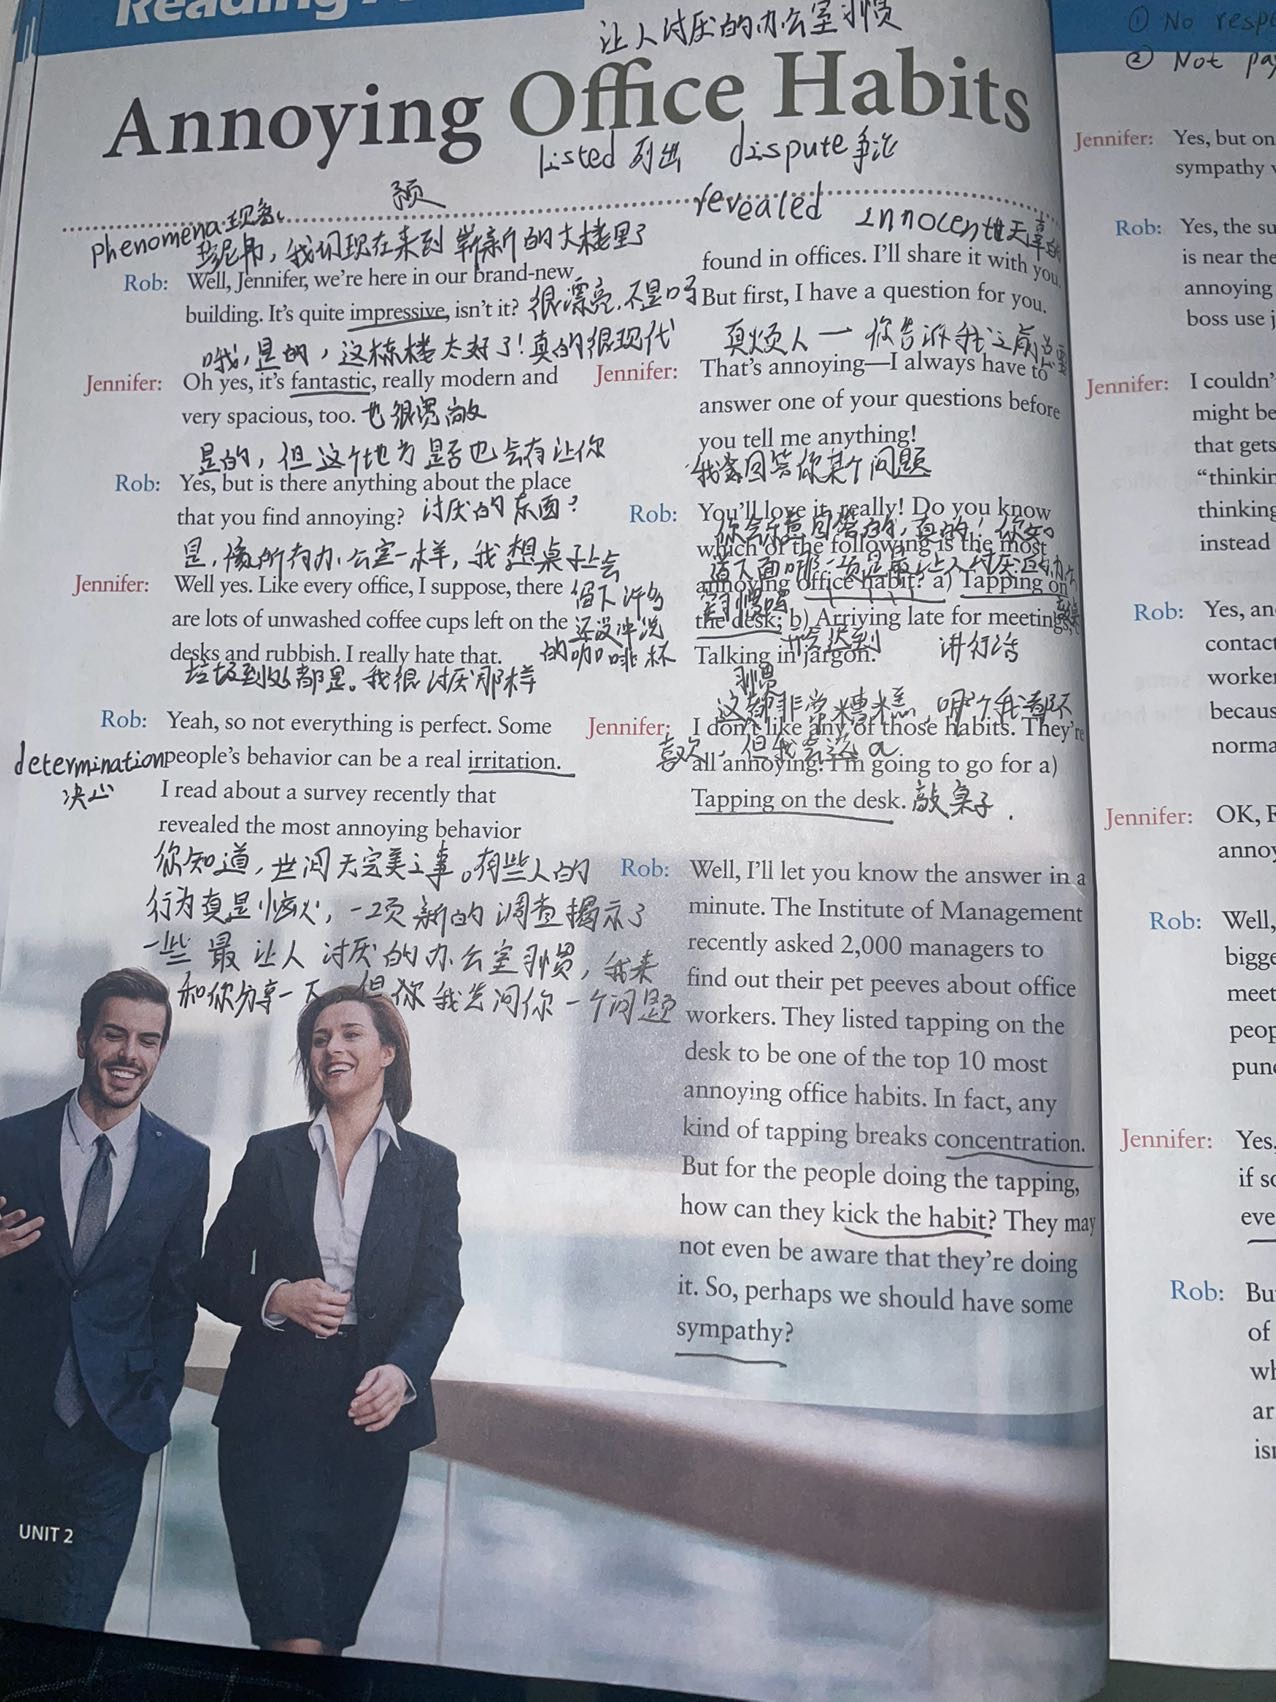 Reading
让人讨厌的办公室习惯
Annoying Office Habits
listed 列出 dispute 争论
预
phenomena 现象
珍妮弗，我们现在来到崭新的大楼里了
Rob: Well, Jennifer, we're here in our brand-new
building. It's quite impressive, isn't it? 很漂亮，不是吗
哦，是的，这栋楼太好了！真的很现代
Jennifer: Oh yes, it's fantastic, really modern and
very spacious, too. 也很宽敞
是的，但这个地方是否也会有让你
Rob: Yes, but is there anything about the place
that you find annoying? 讨厌的东西？
是，像所有办公室一样，我想桌子上会
Jennifer: Well yes. Like every office, I suppose, there 留下许多
are lots of unwashed coffee cups left on the 还没冲洗
desks and rubbish. I really hate that. 的咖啡杯
垃圾到处都是。我很讨厌那样
Rob: Yeah, so not everything is perfect. Some
determination people's behavior can be a real irritation.
决心 I read about a survey recently that
revealed the most annoying behavior
你知道，世间无完美之事。有些人的
行为真是恼火，一项新的调查揭示了
一些最让人讨厌的办公室习惯，我来
和你分享一下，但你我先问你一个问题
UNIT 2
revealed innocent 地天真的
found in offices. I'll share it with you.
But first, I have a question for you.
真烦人一你告诉我之前总要
Jennifer: That's annoying—I always have to
answer one of your questions before
you tell me anything!
我会回答你某个问题
Rob: You'll love it, really! Do you know
你会乐意回答的，真的！你知
which of the following is the most
道下面哪一项是最让人讨厌的办公
annoying office habit? a) Tapping on
室习惯吗
the desk; b) Arriving late for meetings;
迟到 讲行话
Talking in jargon.
习惯
这都非常糟糕，哪个我都不
Jennifer: I don't like any of those habits. They're
喜欢，但我会选 a
all annoying. I'm going to go for a)
Tapping on the desk. 敲桌子.
Rob: Well, I'll let you know the answer in a
minute. The Institute of Management
recently asked 2,000 managers to
find out their pet peeves about office
workers. They listed tapping on the
desk to be one of the top 10 most
annoying office habits. In fact, any
kind of tapping breaks concentration.
But for the people doing the tapping,
how can they kick the habit? They may
not even be aware that they're doing
it. So, perhaps we should have some
sympathy?
① No
② Not
Jennifer: Yes, but on
sympathy
Rob: Yes, the su
is near the
annoying
boss use j
Jennifer: I couldn'
might be
that gets
"thinkin
thinking
instead
Rob: Yes, an
contact
worke
becaus
norma
Jennifer: OK, F
annoy
Rob: Well,
bigge
meet
peop
pun
Jennifer: Yes,
if so
eve
Rob: Bu
of
wh
ar
isn